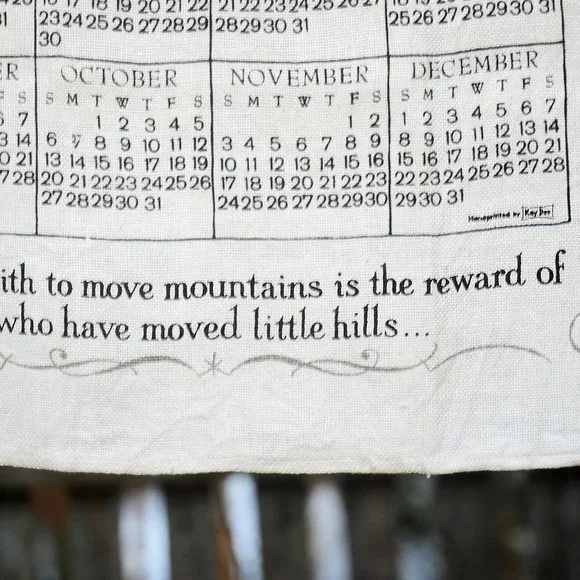 16 17 18 19 20 21 22
23 24 25 26 27 28 29
30
21 22 23 24 25 26 27
28 29 30 31
25 26 27 28 29 30 31
6 7
3 14
0 21
7 28
OCTOBER
S M T W T F S
1 2 3 4 5
6 7 8 9 10 11 12
13 14 15 16 17 18 19
20 21 22 23 24 25 26
27 28 29 30 31
NOVEMBER
S M T W T F S
1 2
3 4 5 6 7 8 9
10 11 12 13 14 15 16
17 18 19 20 21 22 23
24 25 26 27 28 29 30
DECEMBER
S M T W T F S
1 2 3 4 5 6 7
8 9 10 11 12 13 14
15 16 17 18 19 20 21
22 23 24 25 26 27 28
29 30 31
Handprinted by Kay Dee
ith to move mountains is the reward of
who have moved little hills...